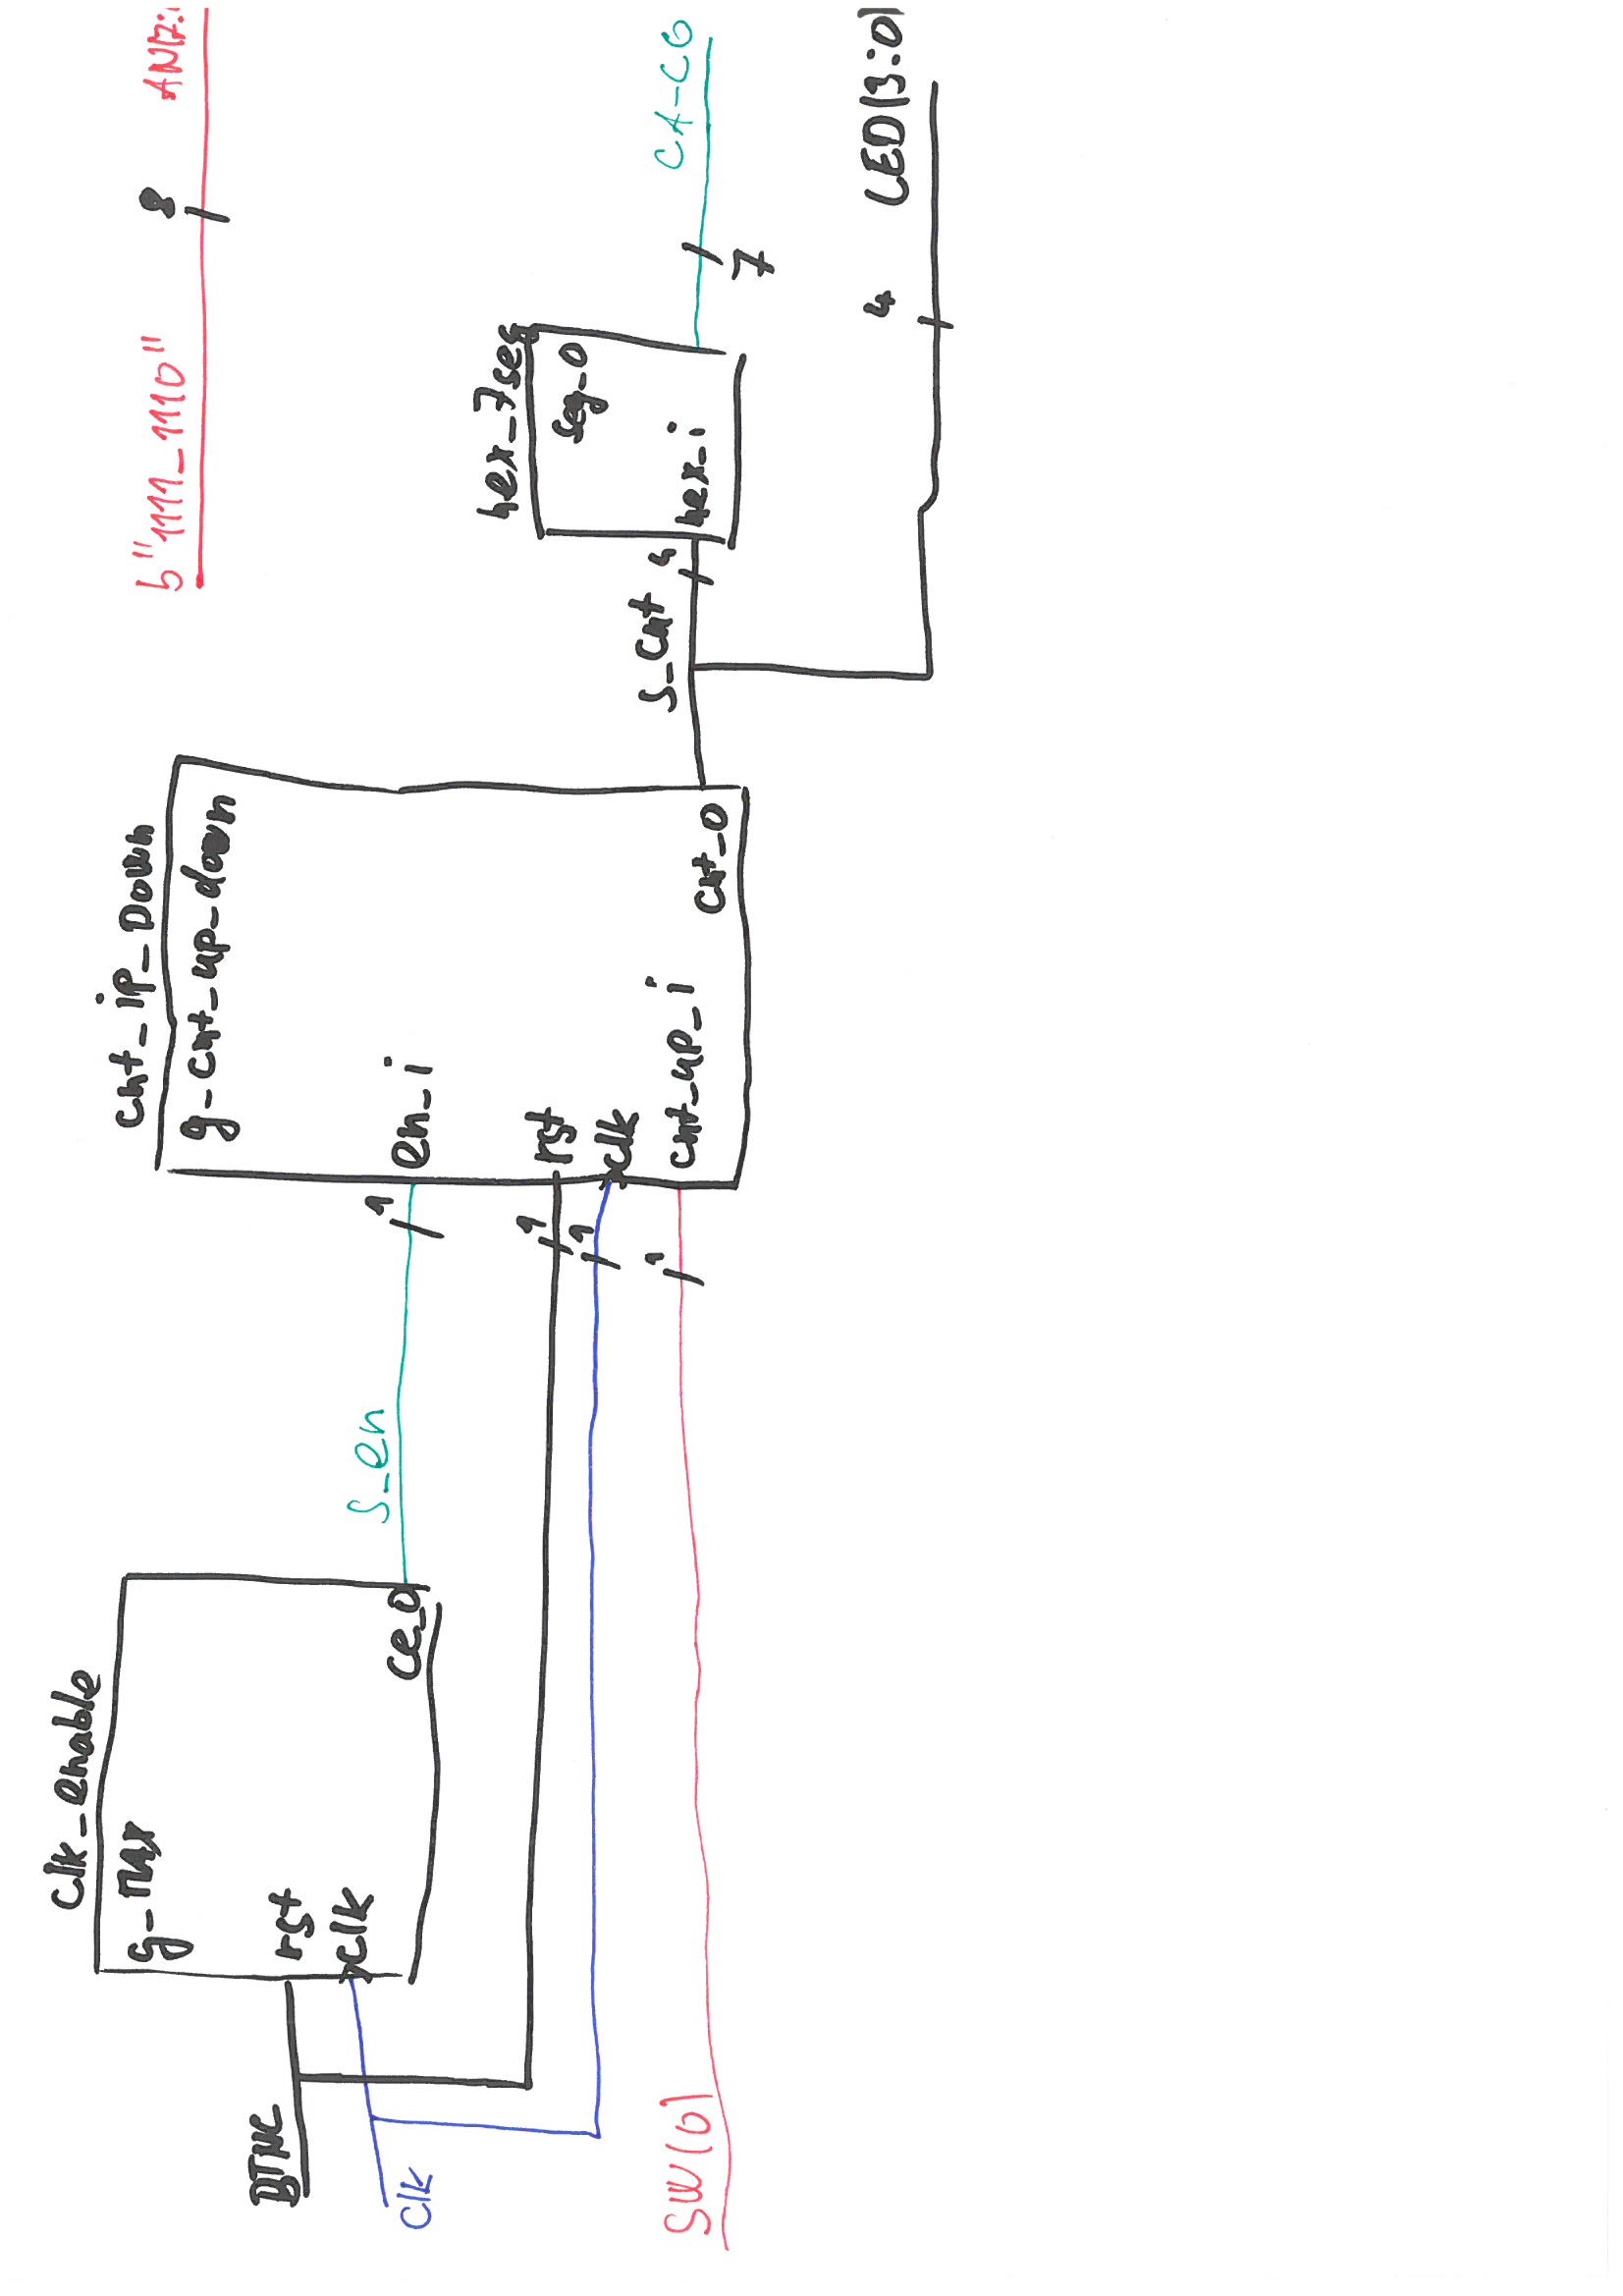 clk_enable
g_MAX
BTNC
rst
clk
clk
ce_o
s_en
1
cnt_ip_Down
g_cnt_up_down
en_i
1
rst
1
clk
SW(0)
1
cnt_up_i
cnt_o
s_cnt
hex_7seg
seg_o
hex_i
CA-CG
7
4
LED(3:0)
b"1111_1110"
8